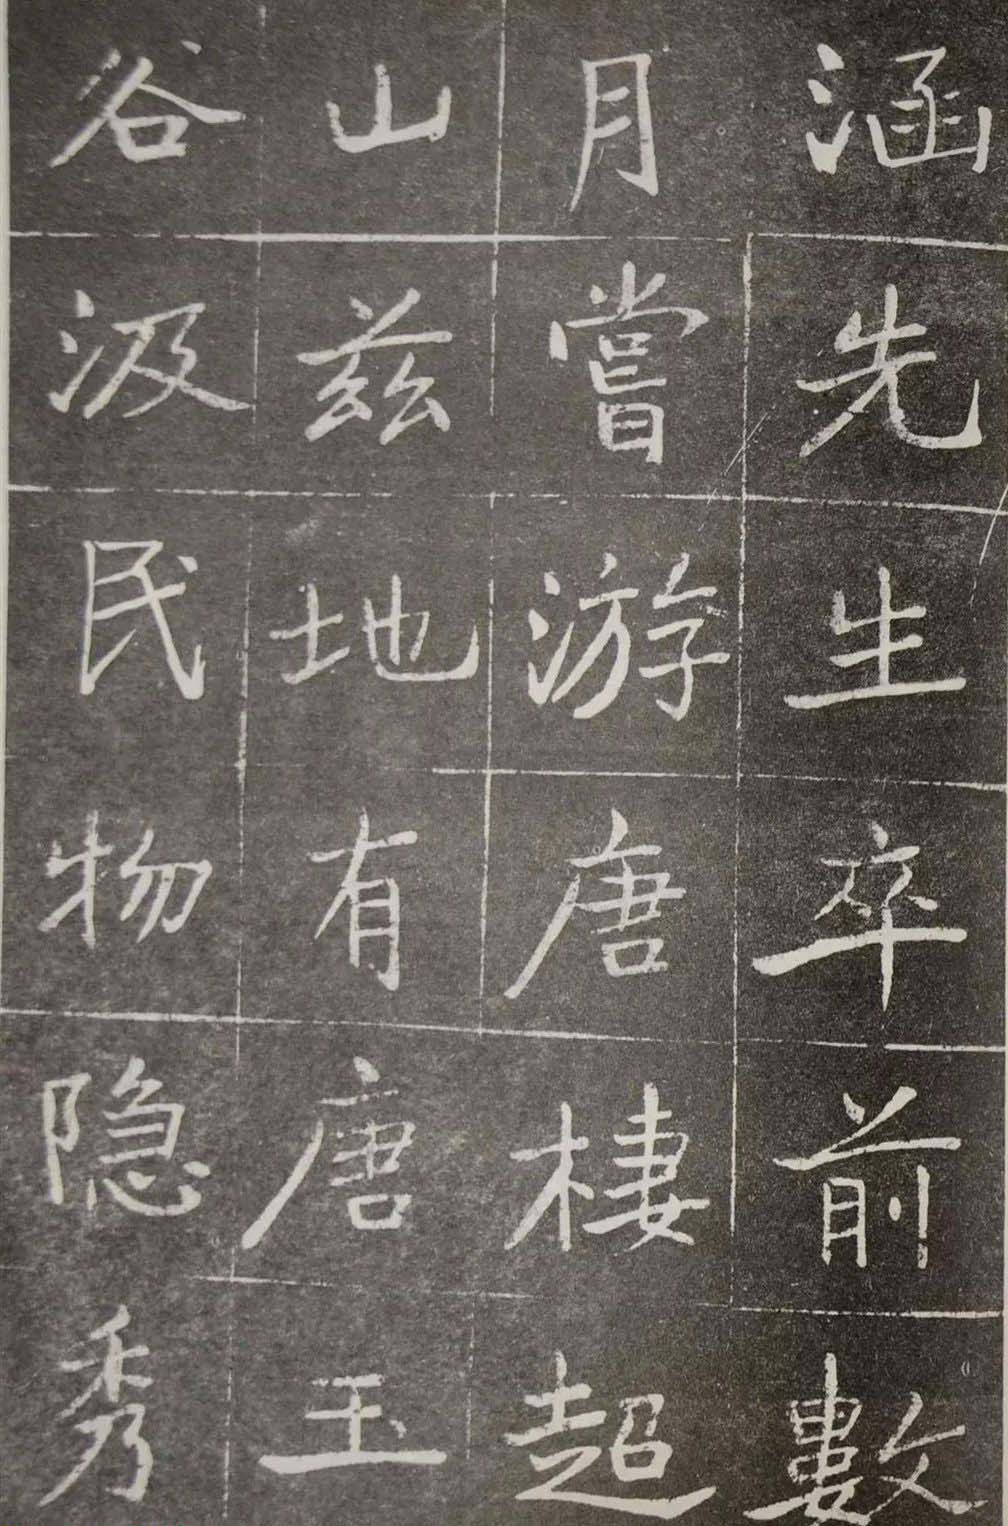 涵先生卒前數
月嘗游唐棲超
山兹地有唐玉
谷汲民物隐秀